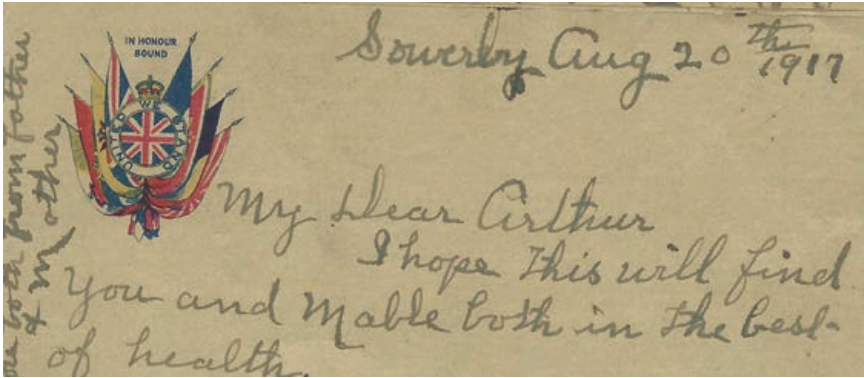 IN HONOUR
BOUND
UNITED WE STAND
Sowerby Aug 20th
1917
My Dear Arthur
I hope This will find
You and Mable both in The best
of health.
both from Father
& Mother